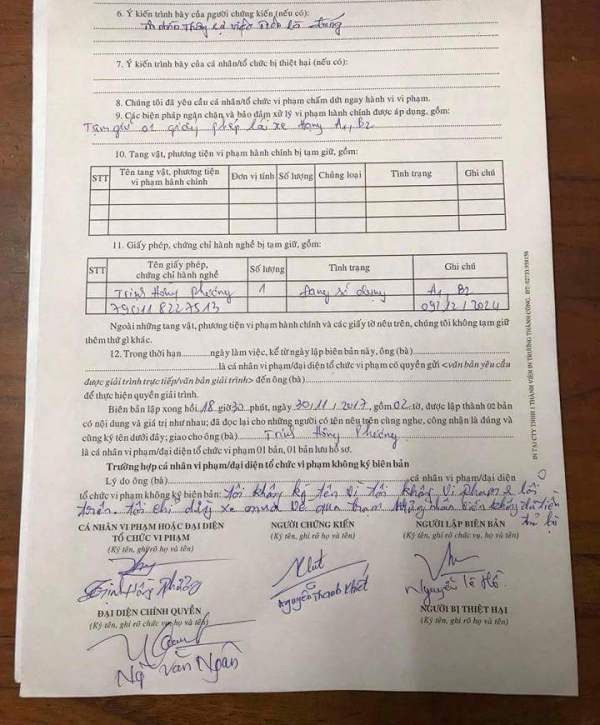 6. Ý kiến trình bày của người chứng kiến (nếu có):
là đúng
7. Ý kiến trình bày của cá nhân/tổ chức bị thiệt hại (nếu có):
8. Chúng tôi đã yêu cầu cá nhân/tổ chức vi phạm chấm dứt ngay hành vi vi phạm.
9. Các biện pháp ngăn chặn và bảo đảm xử lý vi phạm hành chính được áp dụng, gồm:
Tạm giữ 01 giấy phép lái xe hạng A1, B2
10. Tang vật, phương tiện vi phạm hành chính bị tạm giữ, gồm:
STT Tên tang vật, phương tiện vi phạm hành chính Đơn vị tính Số lượng Chủng loại Tình trạng Ghi chú
11. Giấy phép, chứng chỉ hành nghề bị tạm giữ, gồm:
STT Tên giấy phép, chứng chỉ hành nghề Số lượng Tình trạng Ghi chú
Trịnh Hồng Phương 1 Đang sử dụng A1, B2
790118227513
Ngoài những tang vật, phương tiện vi phạm hành chính và các giấy tờ nêu trên, chúng tôi không tạm giữ
thêm thứ gì khác.
12. Trong thời hạn..........ngày làm việc, kể từ ngày lập biên bản này, ông (bà)
là cá nhân vi phạm/đại diện tổ chức vi phạm có quyền gửi <văn bản yêu cầu
được giải trình trực tiếp/văn bản giải trình> đến ông (bà)
để thực hiện quyền giải trình.
Biên bản lập xong hồi 18 giờ 30 phút, ngày 30, 11, 2017, gồm 02 tờ, được lập thành 02 bản
có nội dung và giá trị như nhau; đã đọc lại cho những người có tên nêu trên cùng nghe, công nhận là đúng và
cùng ký tên dưới đây; giao cho ông (bà) Trịnh Hồng Phương
là cá nhân vi phạm/đại diện tổ chức vi phạm 01 bản, 01 bản lưu hồ sơ.
Trường hợp cá nhân vi phạm/đại diện tổ chức vi phạm không ký biên bản
Lý do ông (bà) cá nhân vi phạm/đại diện
tổ chức vi phạm không ký biên bản: tôi không ký tên vì tôi không vi phạm 2 lỗi
trên. tôi chỉ dừng xe qua trạm nhân viên không
CÁ NHÂN VI PHẠM HOẶC ĐẠI DIỆN TỔ CHỨC VI PHẠM
(Ký tên, ghi rõ họ và tên)
Trịnh Hồng Phương
NGƯỜI CHỨNG KIẾN
(Ký tên, ghi rõ họ và tên)
Nguyễn Thanh Khiết
NGƯỜI LẬP BIÊN BẢN
(Ký tên, ghi rõ chức vụ, họ và tên)
Nguyễn Lê Hồ
ĐẠI DIỆN CHÍNH QUYỀN
(Ký tên, ghi rõ chức vụ, họ và tên)
Ngô Văn Ngân
NGƯỜI BỊ THIỆT HẠI
(Ký tên, ghi rõ họ và tên)